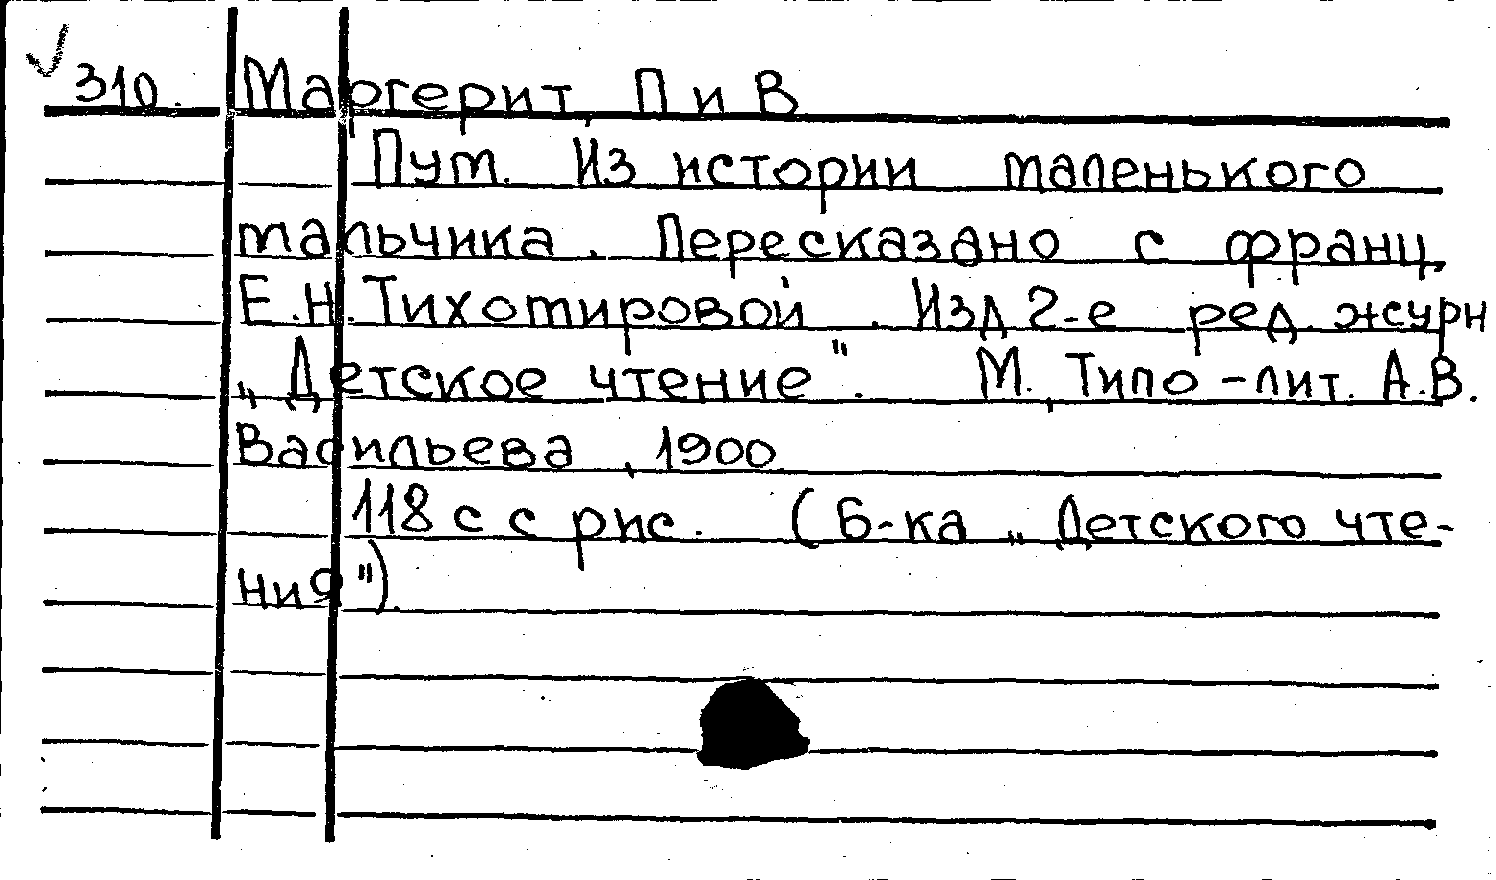 310. Маргерит, П и В
Пум. Из истории маленького
мальчика. Пересказано с франц.
Е.Н. Тихомировой. Изд 2-е ред. журн
„Детское чтение". М., Типо-лит. А.В.
Васильева, 1900
118 с с рис. (Б-ка „Детского чте-
ния").